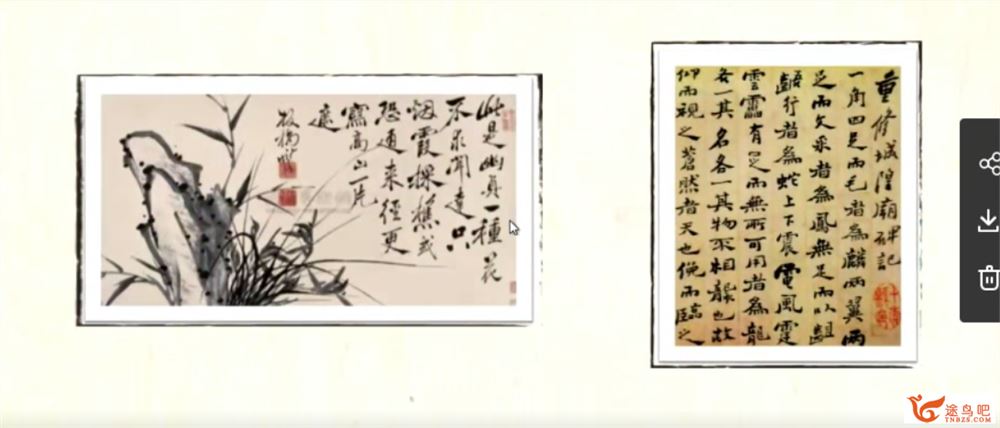 此是幽貞一種花
不求聞達只
烟霞採樵或
恐通來徑更
寫高山一片
遮
板橋
重修城隍廟碑記
一角四足而毛者為麟两翼两
足而文采者為鳳無足而以齟
齬行者為蛇上下震電風霆
雲靁有足而無所可用者為龍
各一其名各一其物不相襲也故
仰而視之蒼然者天也俛而臨之
途鸟吧
TNBZS.COM